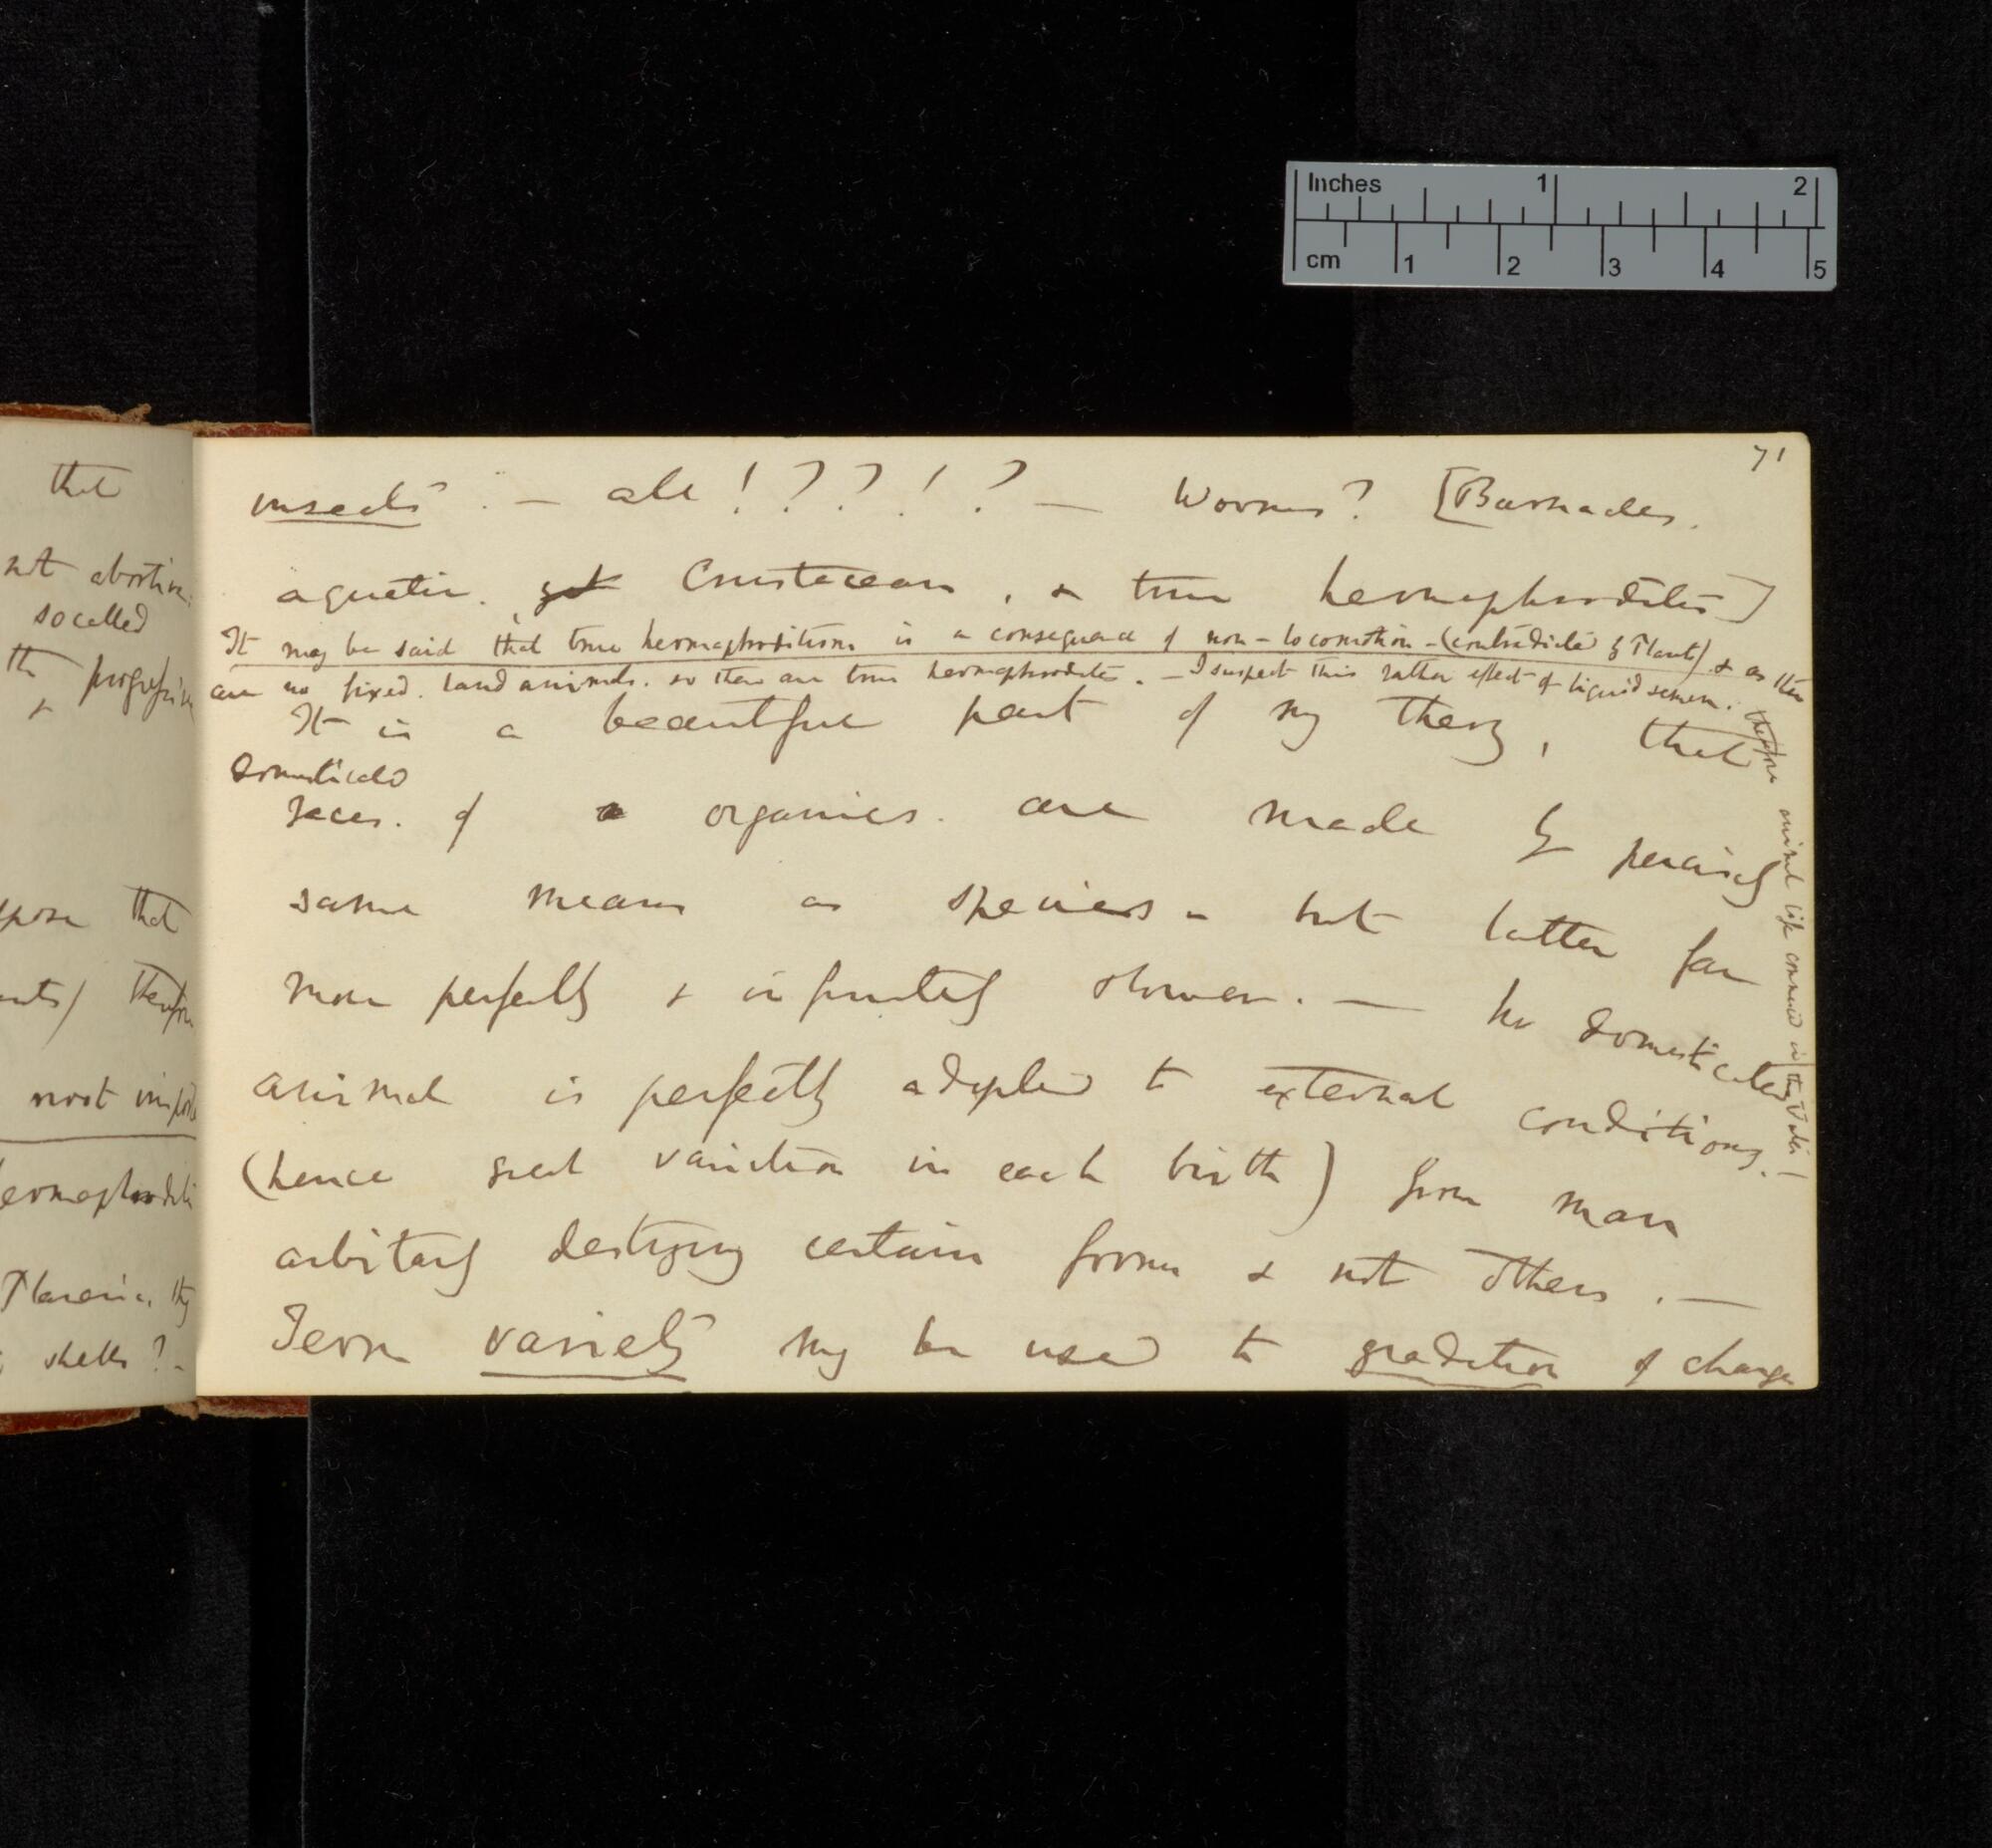 that
not abortive.
so called
the progressive
+
that
therefore
most
shells? -
Inches 1 2
cm 1 2 3 4 5
71
insects. — all!??!? — Worms? [Barnacles.
aquatic. yet Crustacean, & true hermaphrodites]
It may be said that true hermaphroditism is a consequence of non-locomotion – (contradicted by Plants) & as there
are no fixed. land animals. so there are true hermaphrodites. – I suspect this rather effect of liquid semen.
therefore animal life commenced in the Water –
It is a beautiful part of my theory, that
domesticated
races. of organics. are made by precisely
same means as species – but latter far
more perfectly & infinitely slower. — No domesticated
animal is perfectly adapted to external conditions. –
(hence great variation in each birth) from man
arbitrarily destroying certain forms & not others. —
Term variety may be used to gradation of change